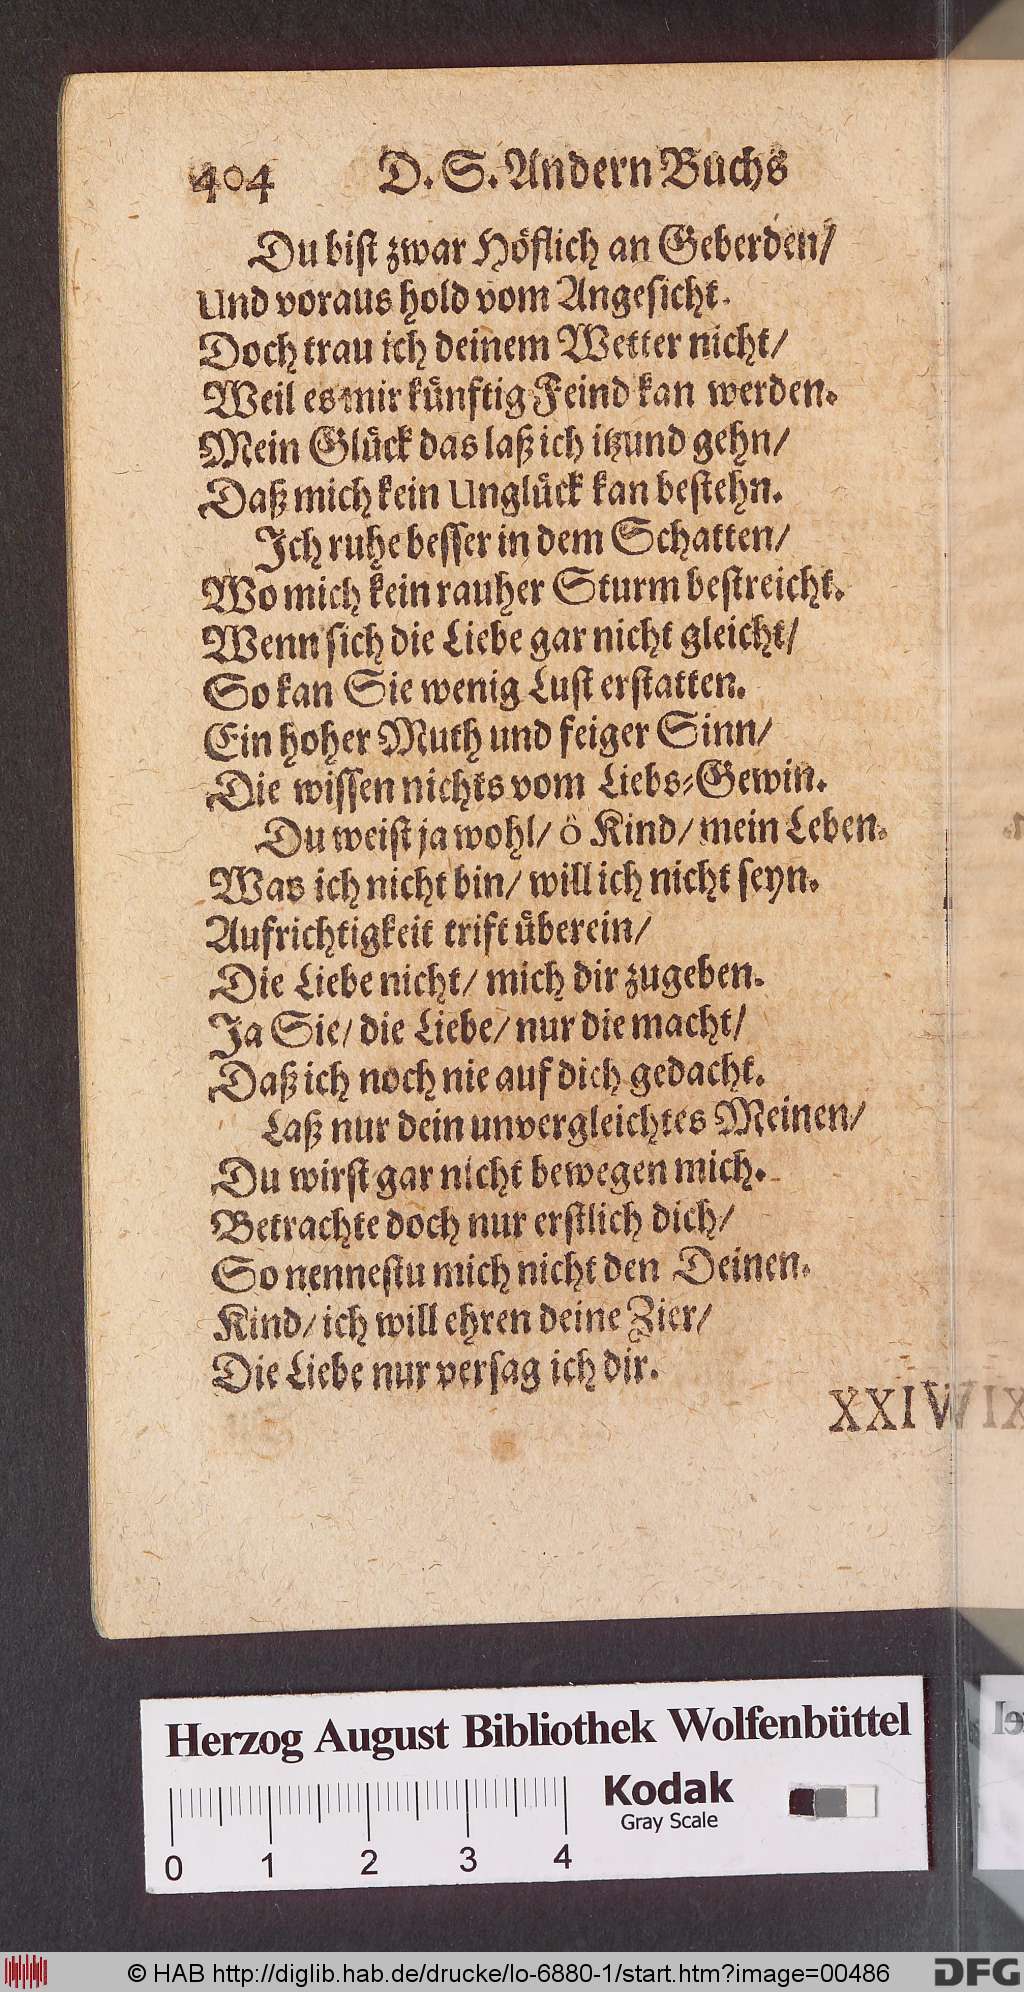 404 D. S. Andern Buchs
Du bist zwar Höflich an Geberden/
Und voraus hold vom Angesicht.
Doch trau ich deinem Wetter nicht/
Weil es mir künftig Feind kan werden.
Mein Glück das laß ich itzund gehn/
Daß mich kein Unglück kan bestehn.
Ich ruhe besser in dem Schatten/
Wo mich kein rauher Sturm bestreicht.
Wenn sich die Liebe gar nicht gleicht/
So kan Sie wenig Lust erstatten.
Ein hoher Muth und feiger Sinn/
Die wissen nichts vom Liebs-Gewin.
Du weist ja wohl/ ô Kind/ mein Leben.
Was ich nicht bin/ will ich nicht seyn.
Aufrichtigkeit trift überein/
Die Liebe nicht/ mich dir zugeben.
Ja Sie/ die Liebe/ nur die macht/
Daß ich noch nie auf dich gedacht.
Laß nur dein unvergleichtes Meinen/
Du wirst gar nicht bewegen mich.
Betrachte doch nur erstlich dich/
So nennestu mich nicht den Deinen.
Kind/ ich will ehren deine Zier/
Die Liebe nur versag ich dir.
Herzog August Bibliothek Wolfenbüttel
Kodak
Gray Scale
0 1 2 3 4
© HAB http://diglib.hab.de/drucke/lo-6880-1/start.htm?image=00486
DFG